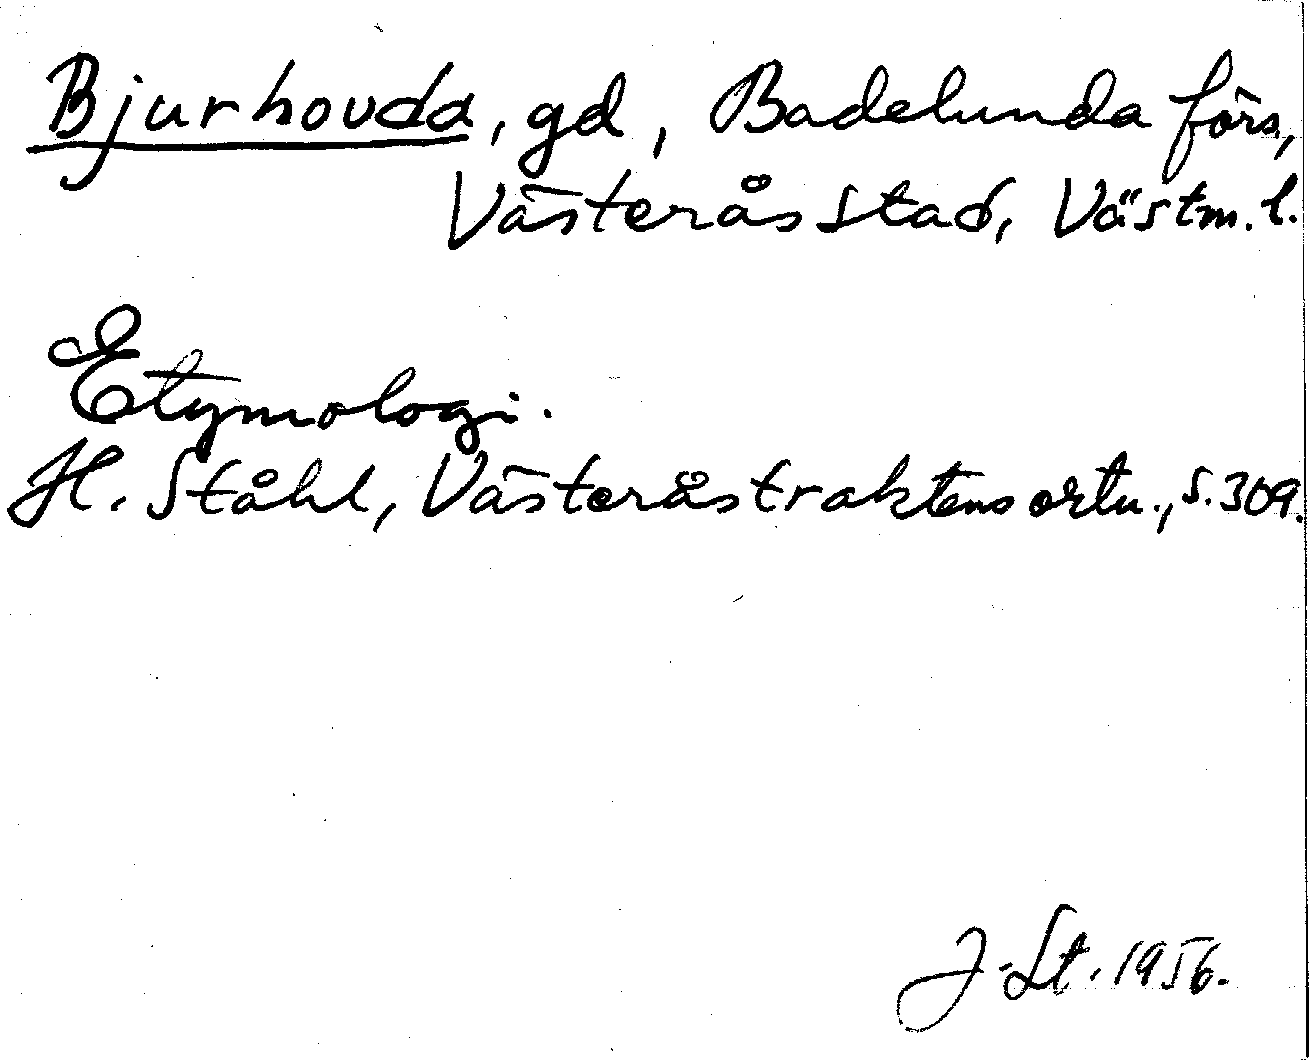 Bjurhovda, gd, Badelunda förs,
Västerås stad, Västm. l.
Etymologi.
H. Ståhl, Västeråstraktens ortn., s. 309.
J. St. 1956.